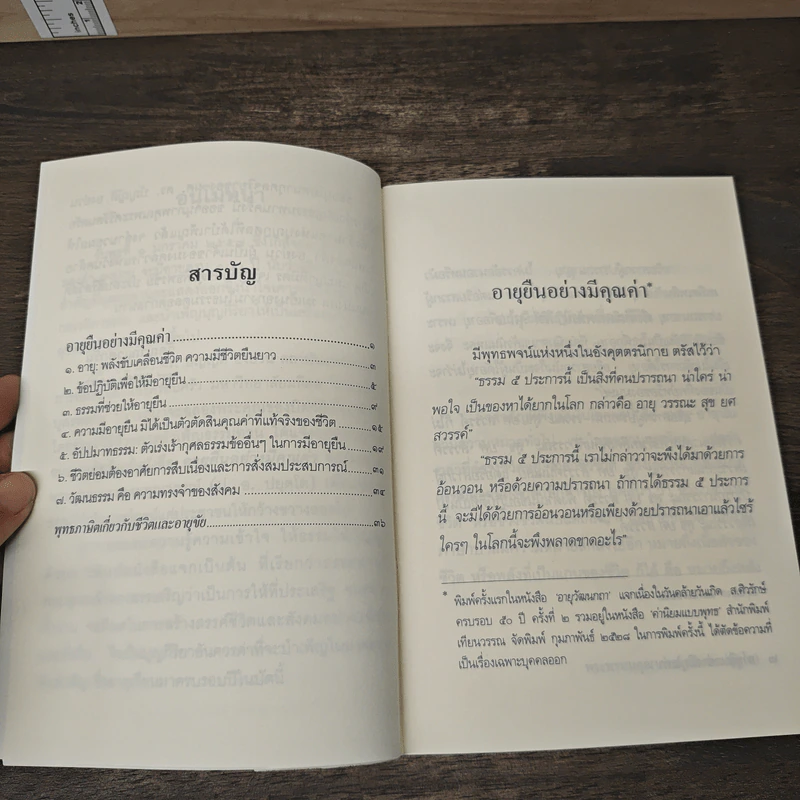 inches
1
สารบัญ
อายุยืนอย่างมีคุณค่า ........................................ ๑
๑. อายุ: พลังขับเคลื่อนชีวิต ความมีชีวิตยืนยาว .................... ๓
๒. ข้อปฏิบัติเพื่อให้มีอายุยืน ........................................ ๕
๓. ธรรมที่ช่วยให้อายุยืน ........................................ ๙
๔. ความมีอายุยืน มิได้เป็นตัวตัดสินคุณค่าที่แท้จริงของชีวิต ........ ๑๕
๕. อัปปมาทธรรม: ตัวเร่งเร้ากุศลธรรมข้ออื่นๆ ในการมีอายุยืน ...๑๙
๖. ชีวิตย่อมต้องอาศัยการสืบเนื่องและการสั่งสมประสบการณ์ ........๓๑
๗. วัฒนธรรม คือ ความทรงจำของสังคม ........................ ๓๔
พุทธภาษิตเกี่ยวกับชีวิตและอายุขัย ........................................ ๓๖
อายุยืนอย่างมีคุณค่า*
มีพุทธพจน์แห่งหนึ่งในอังคุตตรนิกาย ตรัสไว้ว่า
“ธรรม ๕ ประการนี้ เป็นสิ่งที่คนปรารถนา น่าใคร่ น่า
พอใจ เป็นของหาได้ยากในโลก กล่าวคือ อายุ วรรณะ สุข ยศ
สวรรค์”
“ธรรม ๕ ประการนี้ เราไม่กล่าวว่าจะพึงได้มาด้วยการ
อ้อนวอน หรือด้วยความปรารถนา ถ้าการได้ธรรม ๕ ประการ
นี้ จะมีได้ด้วยการอ้อนวอนหรือเพียงด้วยปรารถนาเอาแล้วไซร้
ใครๆ ในโลกนี้จะพึงพลาดขาดอะไร”
* พิมพ์ครั้งแรกในหนังสือ ‘อายุวัฒนกถา’ แจกเนื่องในวันคล้ายวันเกิด ส.ศิวรักษ์
ครบรอบ ๕๐ ปี ครั้งที่ ๒ รวมอยู่ในหนังสือ ‘ค่านิยมแบบพุทธ’ สำนักพิมพ์
เทียนวรรณ จัดพิมพ์ กุมภาพันธ์ ๒๕๒๘ ในการพิมพ์ครั้งนี้ ได้ตัดข้อความที่
เป็นเรื่องเฉพาะบุคคลออก